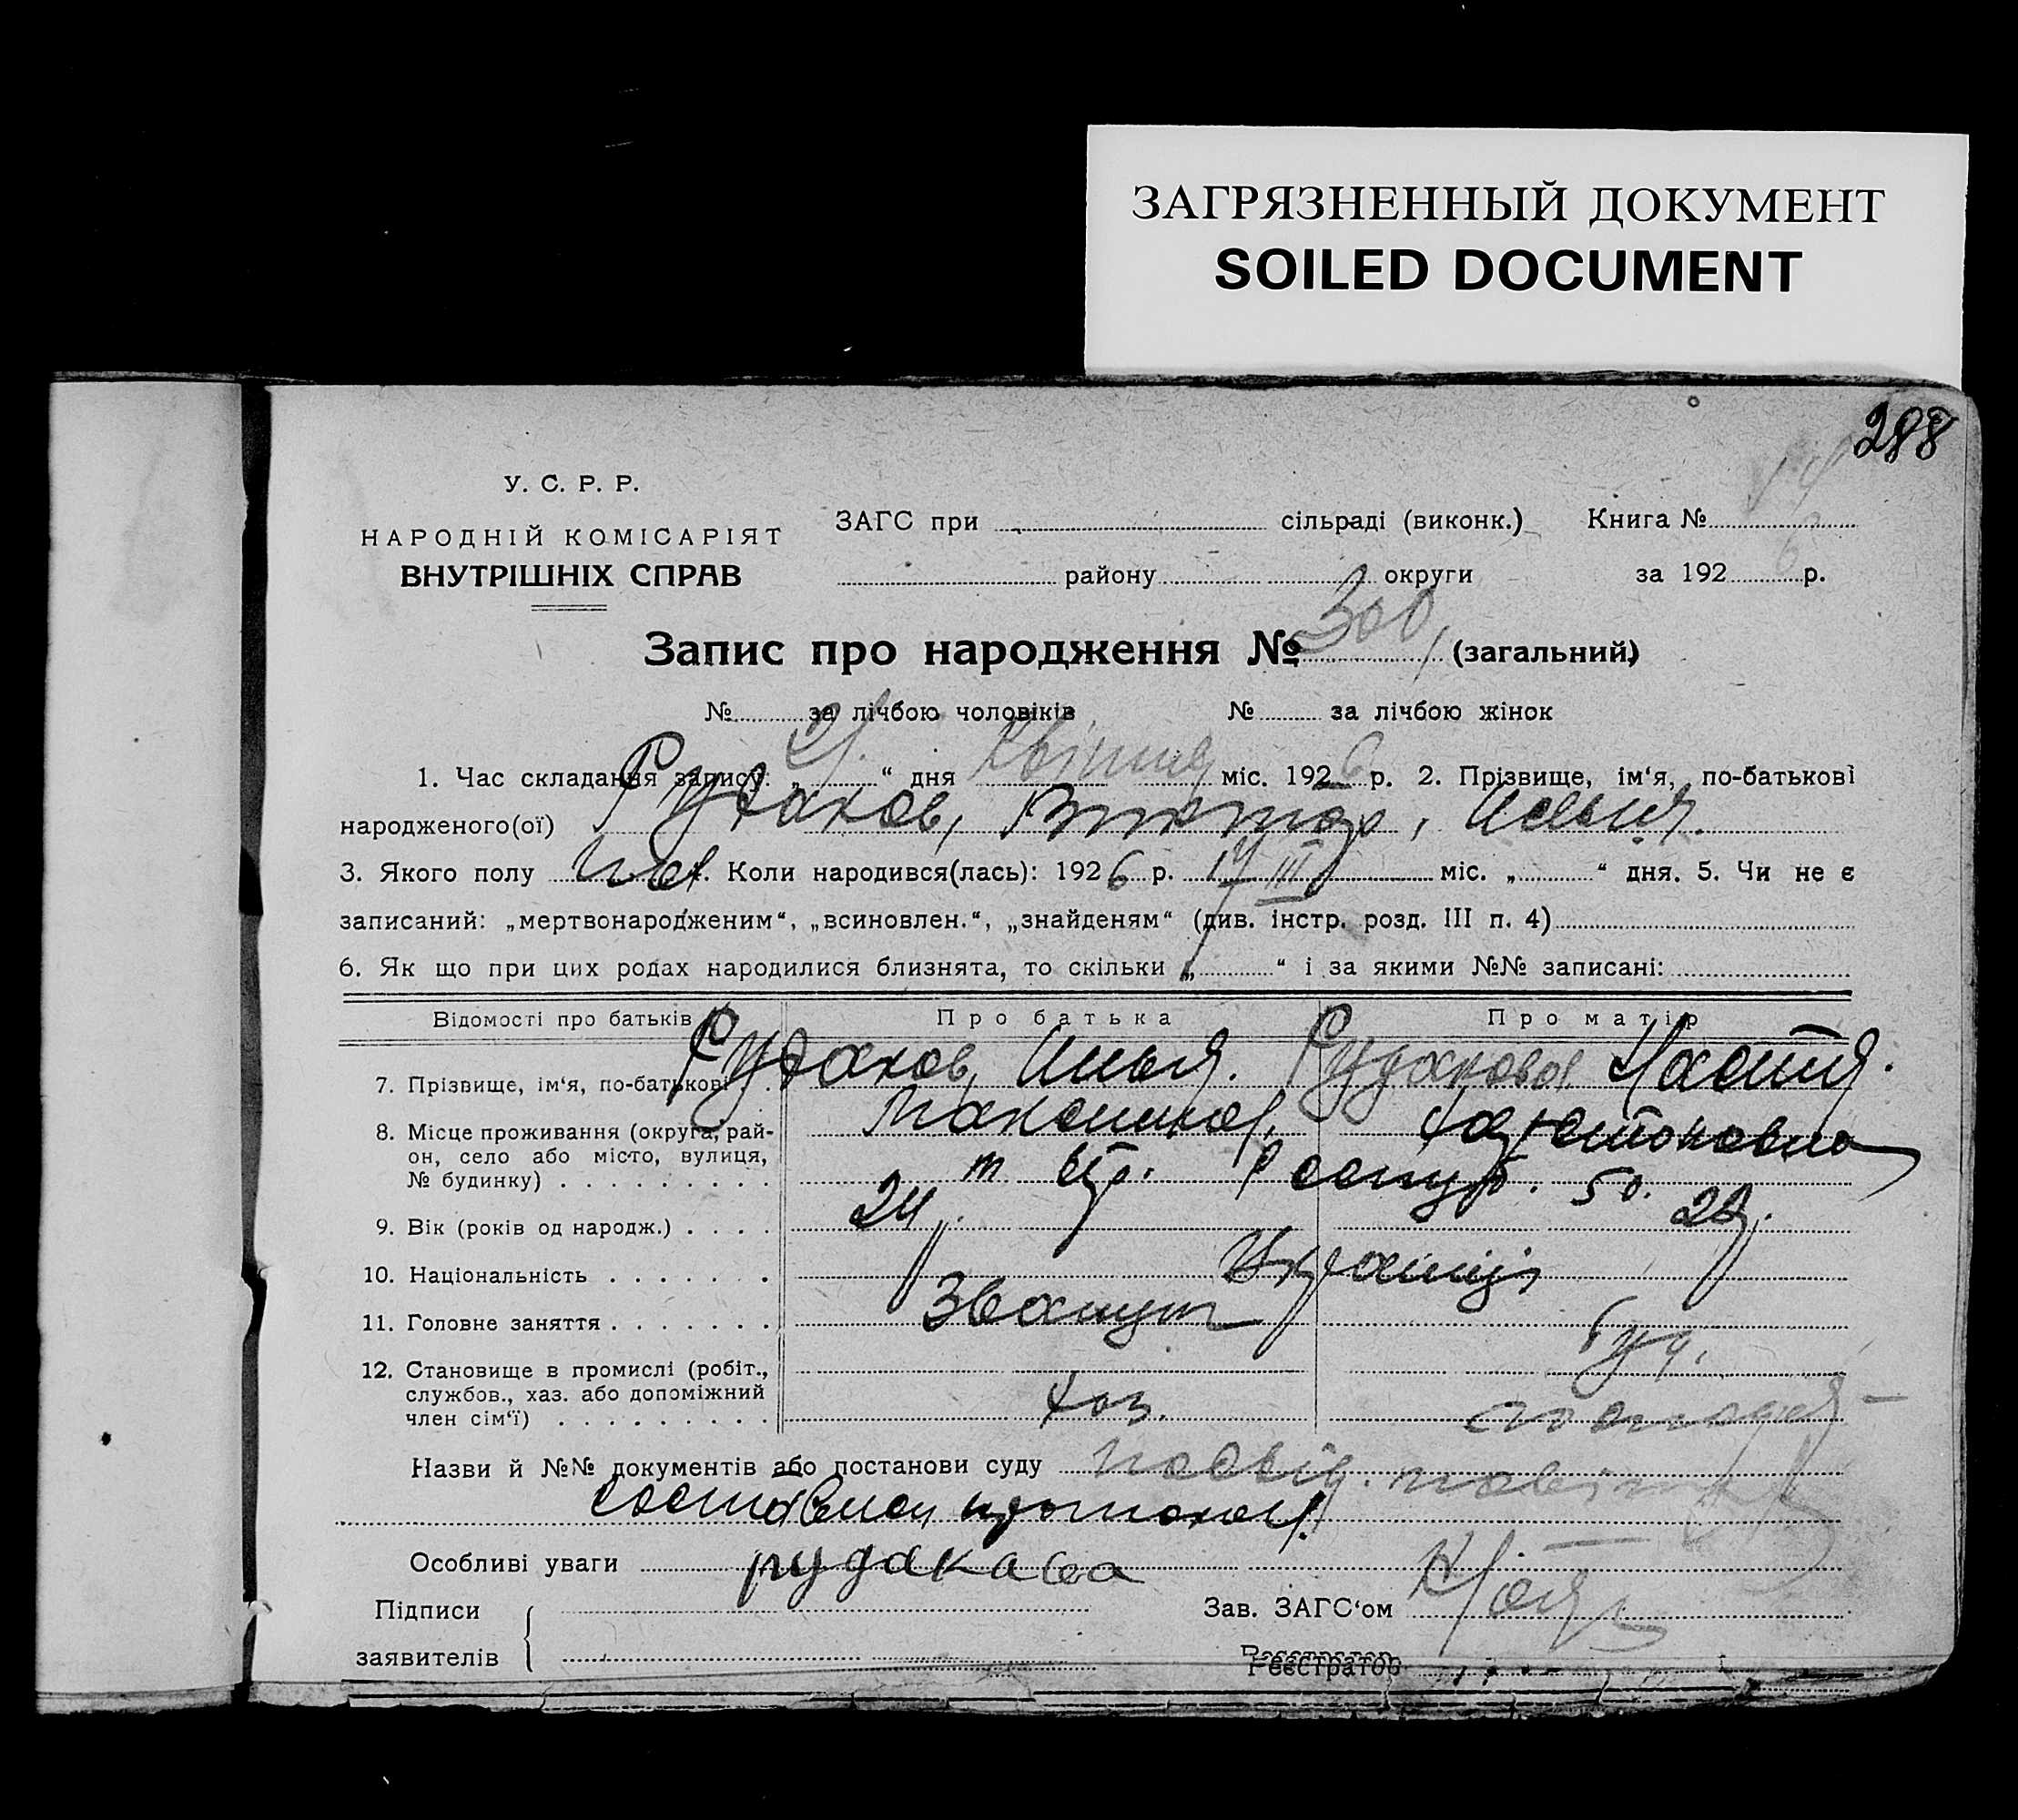 ЗАГРЯЗНЕННЫЙ ДОКУМЕНТ
SOILED DOCUMENT
288
У. С. Р. Р.
НАРОДНІЙ КОМІСАРІЯТ
ВНУТРІШНІХ СПРАВ
ЗАГС при сільраді (виконк.) Книга №
району округи за 192 6 р.
Запис про народження № 300 (загальний)
№ за лічбою чоловіків № за лічбою жінок
1. Час складання запису: „ 21 “ дня квітня міс. 192 6 р. 2. Прізвище, ім‘я, по-батькові
народженого(ої) Рудаков, Виктор, Ильич.
3. Якого полу чол. 4. Коли народився(лась): 192 6 р. 17 III міс. „ “ дня. 5. Чи не є
записаний: „мертвонародженим“, „всиновлен.“, „знайденям“ (див. інстр. розд. III п. 4)
6. Як що при цих родах народилися близнята, то скільки „ “ і за якими №№ записані:
Відомості про батьків Про батька Про матір
7. Прізвище, ім‘я, по-батькові Рудаков, Илья. Рудакова Настя.
Максимов.
8. Місце проживання (округа, рай-
он, село або місто, вулиця,
№ будинку) Респуб. 50.
9. Вік (років од народж.) 24 р. 23 р.
10. Національність Українці
11. Головне заняття
12. Становище в промислі (робіт.,
службов., хаз. або допоміжний
член сім‘ї) хоз.
Назви й №№ документів або постанови суду
протокол.
Особливі уваги рудакова
Підписи Зав. ЗАГС‘ом
заявителів Реєстратор